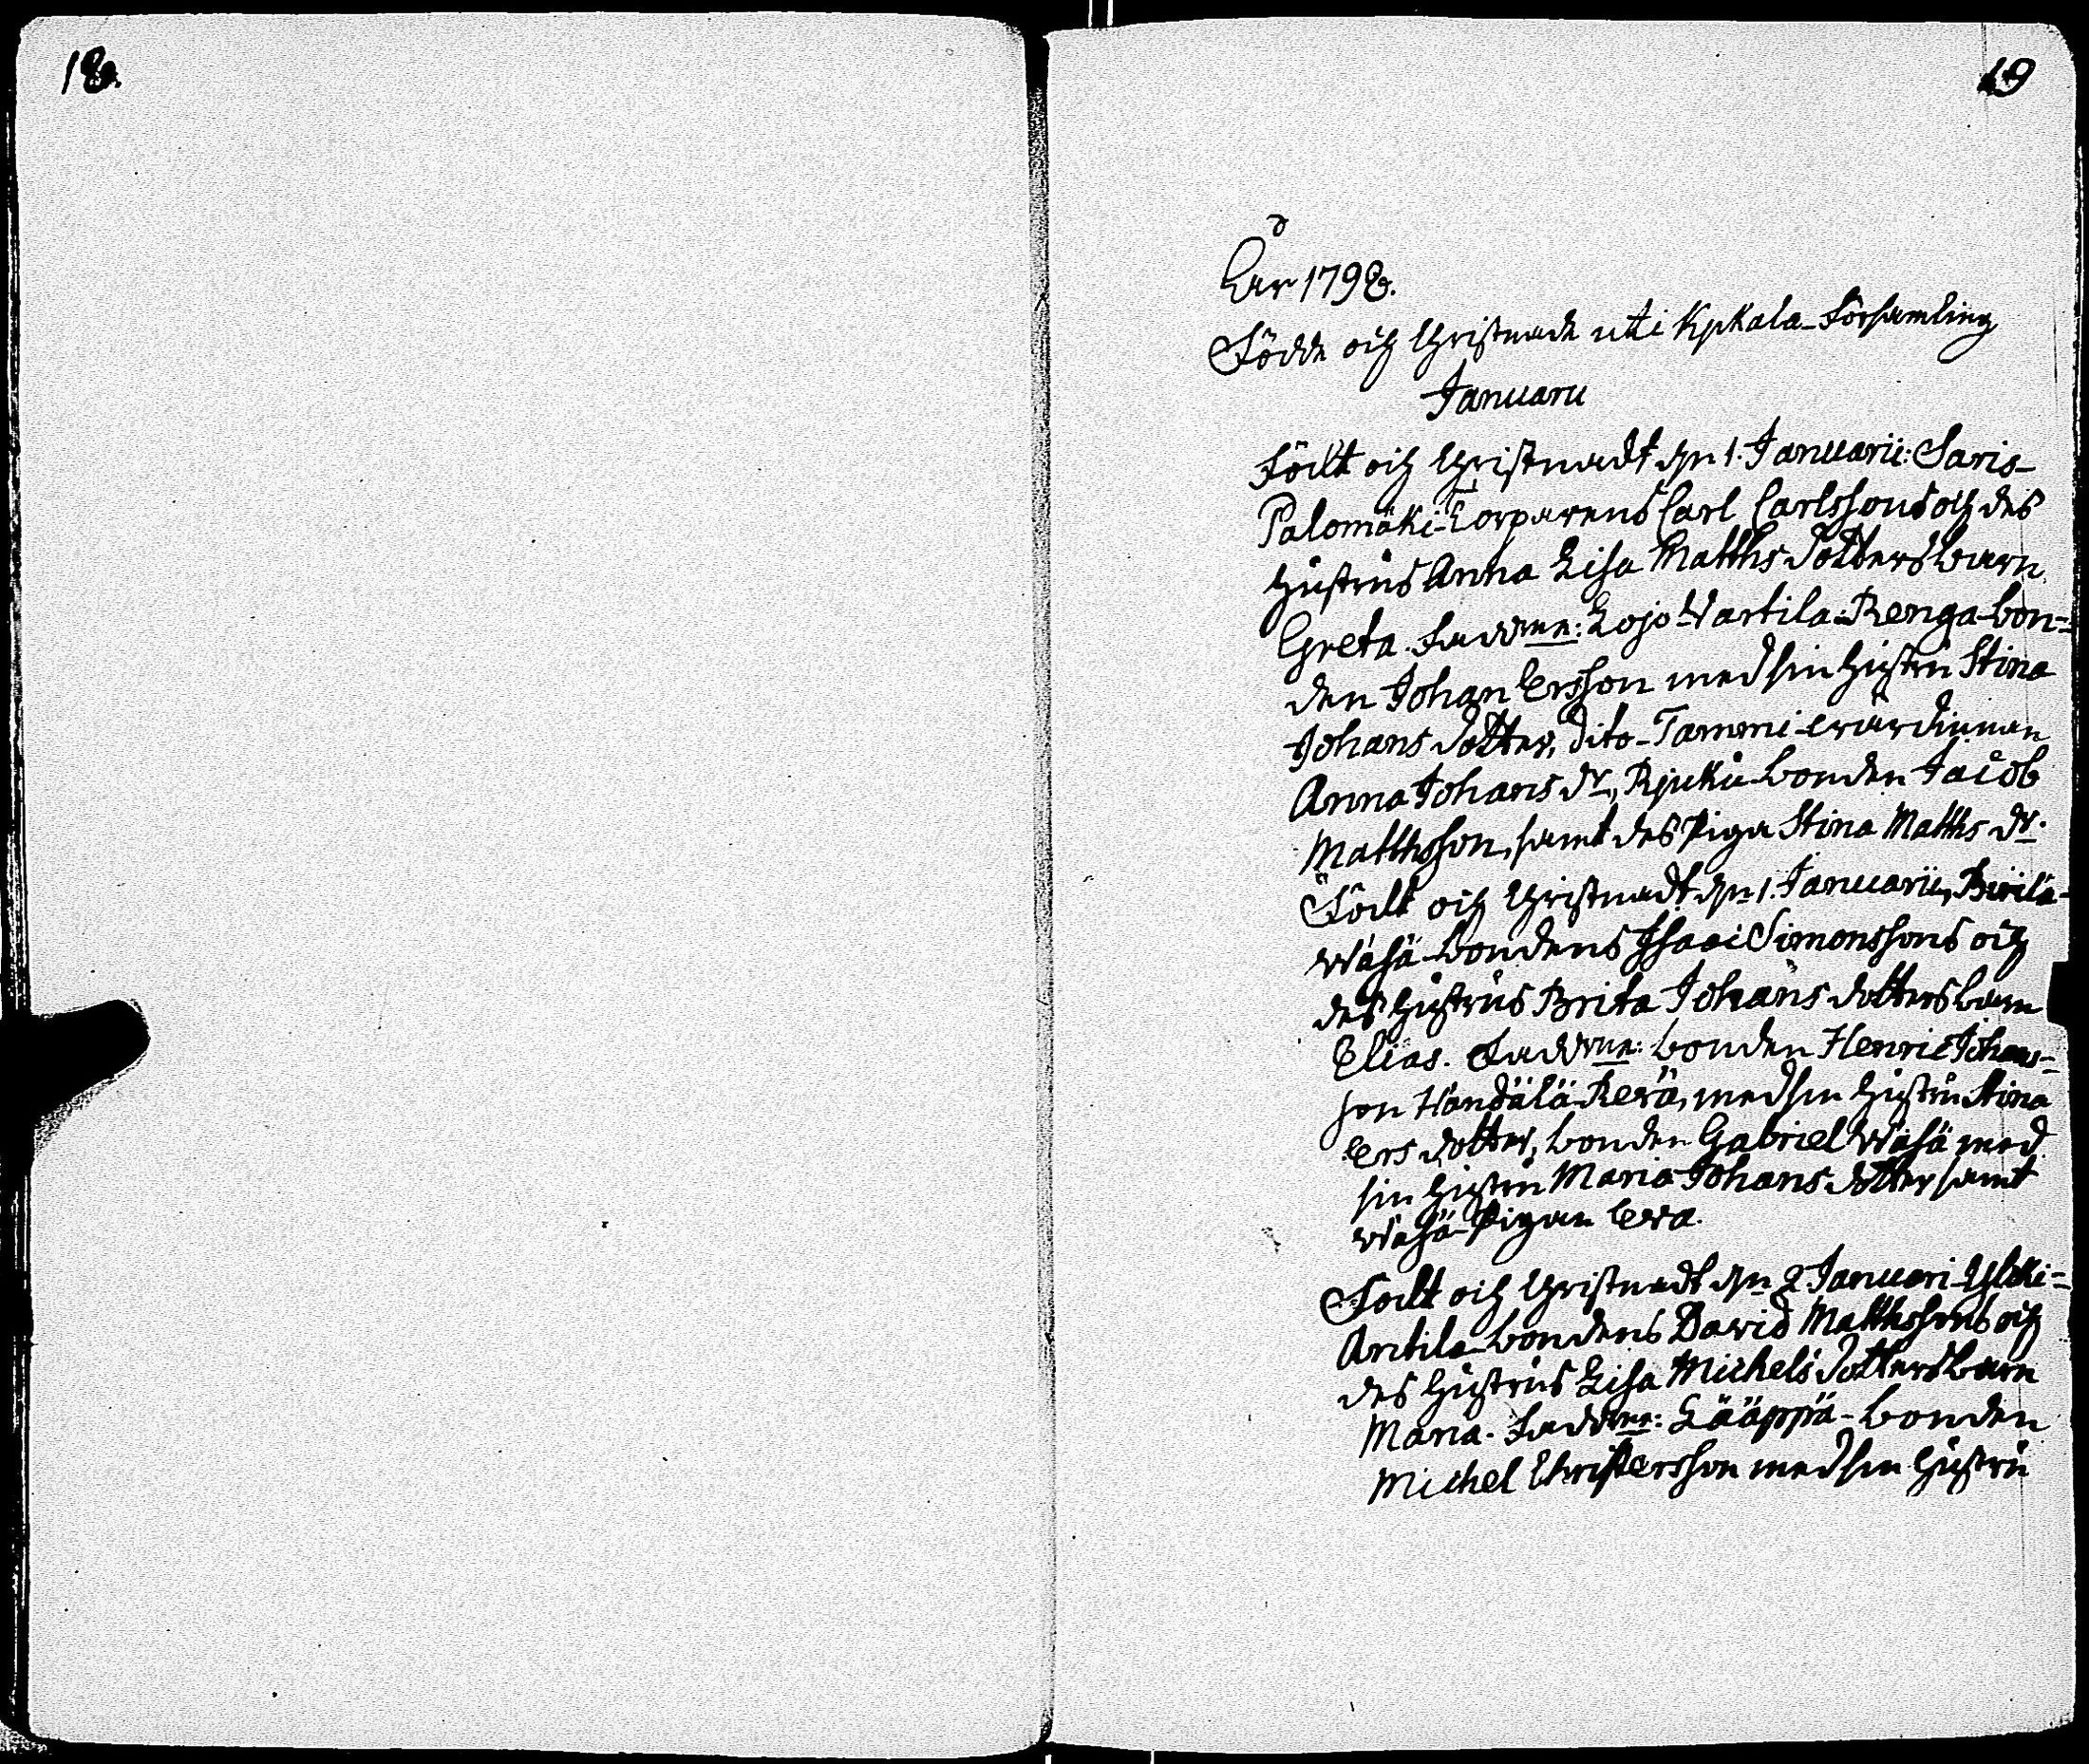 18.
19
År 1798.
Födde och Christnade uti Kjikala Församling
Januarii
Födt och Christnadt d. 1. Januarii: Saris-
Palomäki-Torparens Carl Carlssons och des
hustrus Anna Lisa Matths Dotters barn
Greta. Faddrne: Lojo Vartila-Renga-bon=
den Johan Ersson med sin hustru Stina
Johans Dotter, dito-Tammi-värdinnan
Anna Johans dr, Rjuku-bonden Jacob
Matthsson, samt des Piga Stina Matths dr.
Födt och Christnadt d. 1. Januarii,
Wähä-bondens Isaac Simonssons och
des hustrus Brita Johans dotters barn
Elias. Faddrne: bonden Henric Johans=
son Händälä Rerä, med sin hustru Stina
Ers dotter, bonden Gabriel Wähä med
sin hustru Maria Johans dotter samt
Wähä-Pigan Eva.
Födt och Christnadt d. 2. Januari Yliski=
Antila-bondens David Matthssons och
des hustrus Lisa Michels Dotters barn
Maria. Faddrne: Lääppä-bonden
Michel Christersson med sin hustru